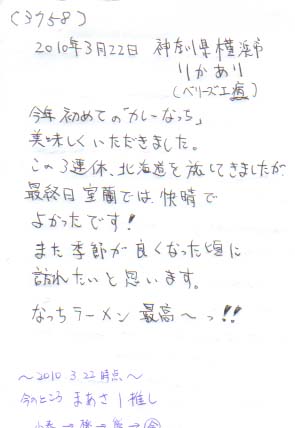 (3758)
2010年3月22日 神奈川県横浜市
りかあり
(ベリーズ工房)
今年初めての「カレーなっち」
美味しくいただきました。
この3連休、北海道を旅してきましたが
最終日室蘭では快晴で
よかったです!
また季節が良くなった頃に
訪れたいと思います。
なっちラーメン最高〜っ!!
〜2010 3.22時点〜
今のところ まあさ1推し